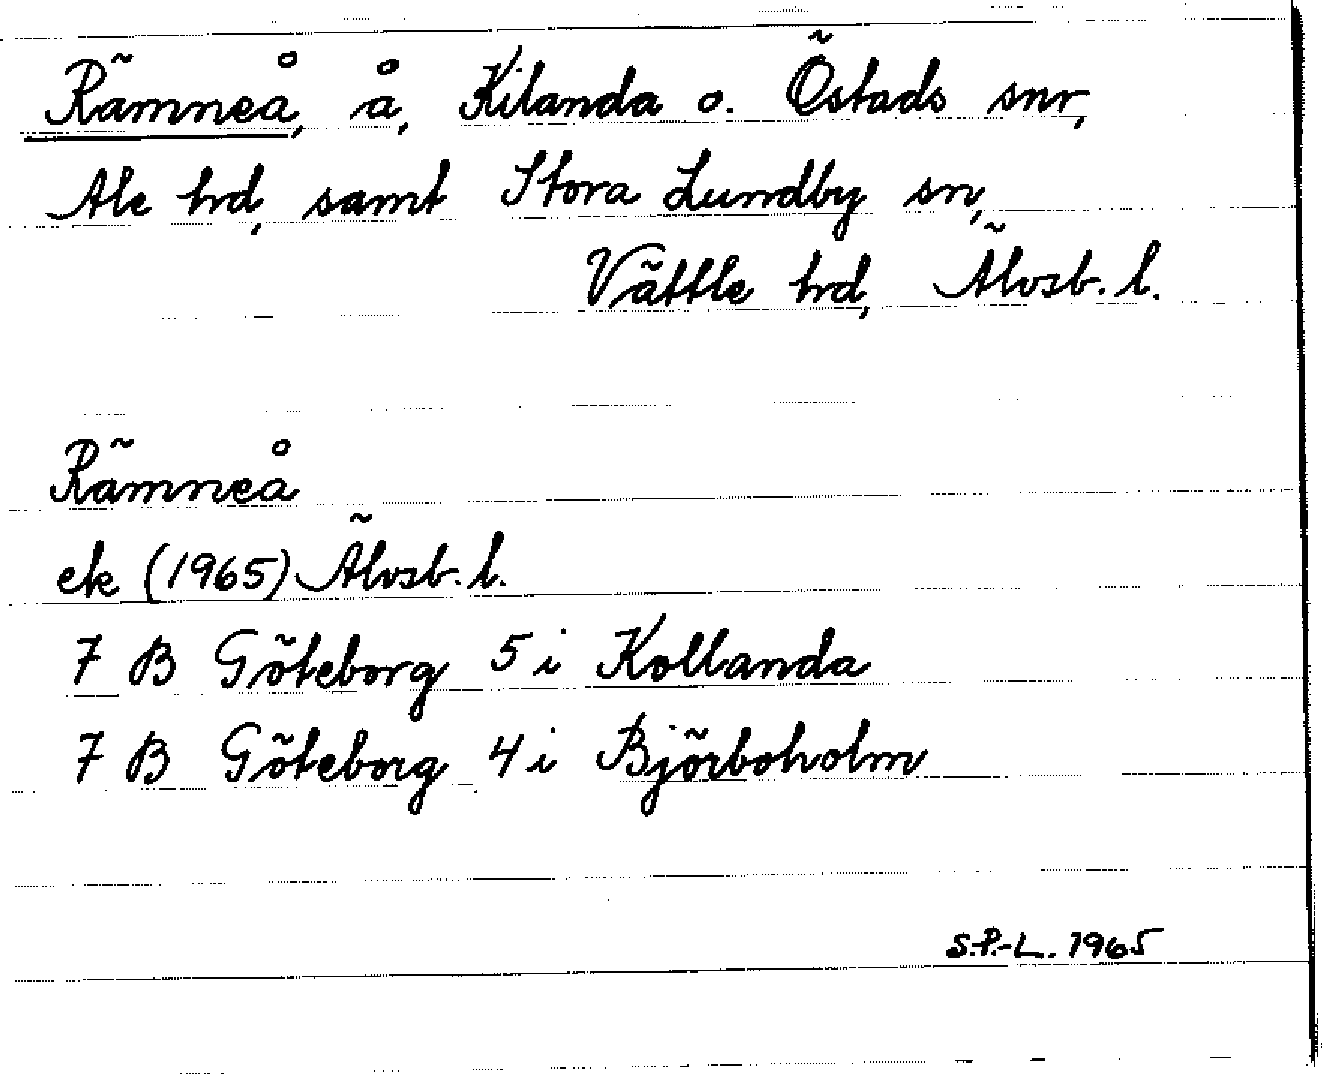 Rämneå, å, Kilanda o. Östads snr,
Ale hd, samt Stora Lundby sn,
Vättle hd, Älvsb. l.
Rämneå
ek (1965) Älvsb. l.
7 B Göteborg 5 i Kollanda
7 B Göteborg 4 i Björboholm
S.P.-L. 1965